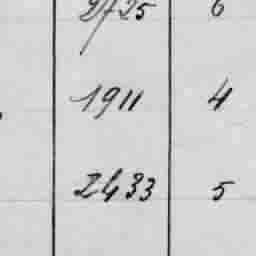 2725 6
1911 4
2433 5